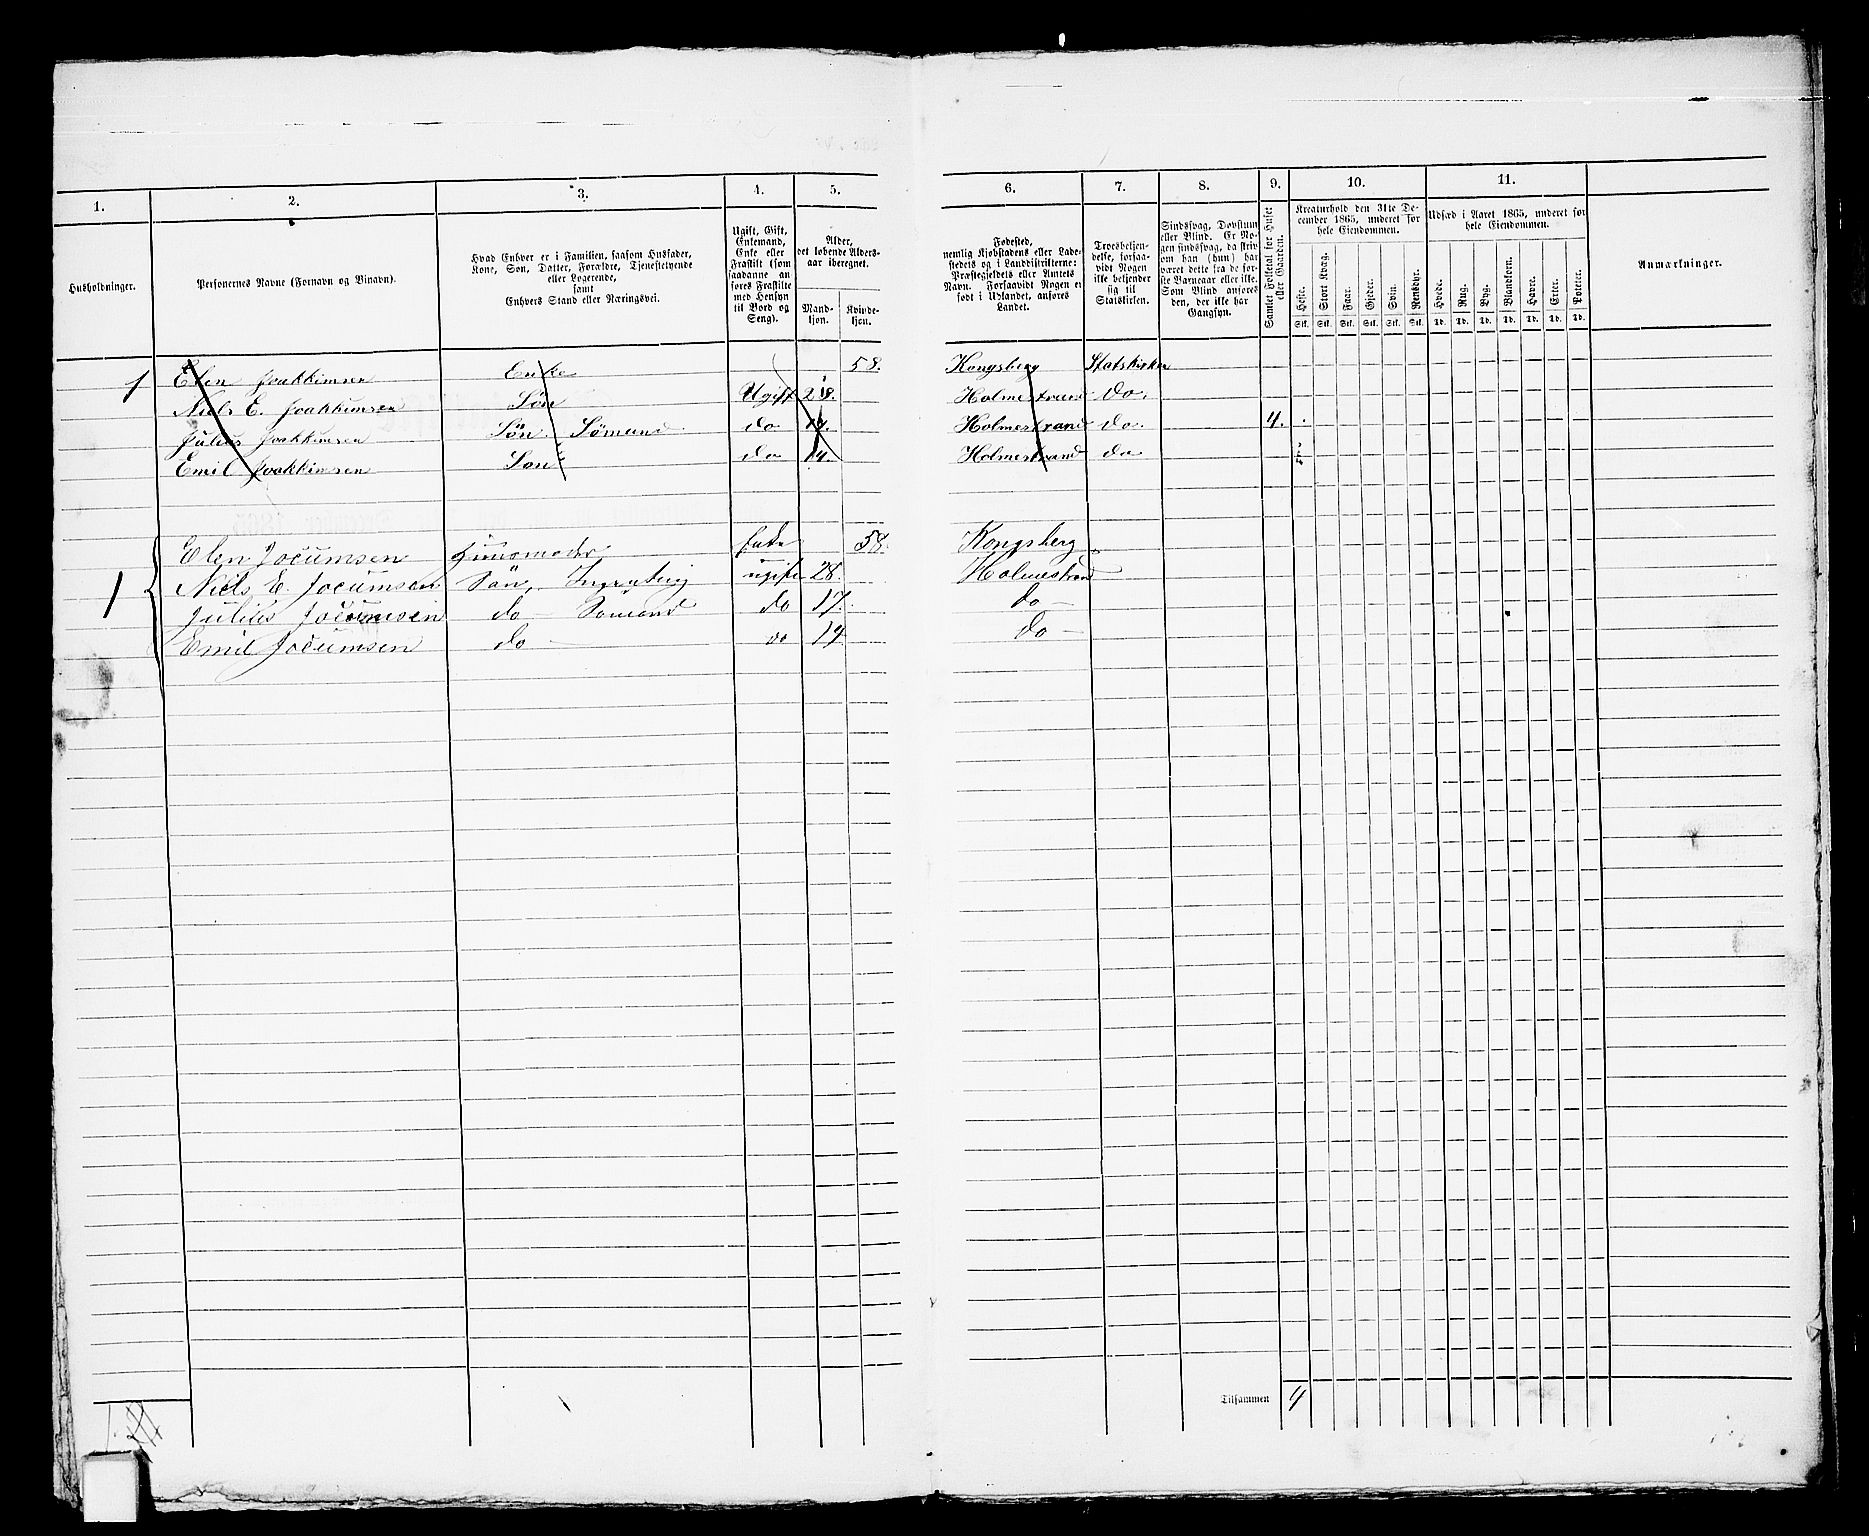 1. 2. 3. 4. 5. 6. 7. 8. 9. 10. 11.
Husholdninger.
Personernes Navne (Fornavn og Binavn).
Hvad Enhver er i Familien, saasom Husfader,
Kone, Søn, Datter, Forældre, Tjenestetyende
eller Logerende,
samt
Enhvers Stand eller Næringsvei.
Ugift, Gift,
Enkemand,
Enke eller
Fraskilt (som
saadanne an-
føres Fraskilte
med Hensyn
til Bord og
Seng).
Alder,
det løbende Alders-
aar iberegnet.
Mand-
kjøn.
Kvinde-
kjøn.
Fødested,
nemlig Kjøbstadens eller Lade-
stedets og i Landdistrikterne:
Præstegjeldets eller Amtets
Navn. Forsaavidt Nogen er
født i Udlandet, anføres
Landet.
Troesbekjen-
delse, forsaa-
vidt Nogen
ikke bekjender
sig til
Statskirken.
Sindssvag, Døvstum
eller Blind. Er No-
gen sindssvag, da skriv
om han (hun) har
været dette fra de før-
ste Barneaar eller ikke.
Som Blind anføres
den, der ikke har
Gangsyn.
Samlet Folketal for Huset
eller Gaarden.
Kreaturhold den 31te De-
cember 1865, underet for
hele Eiendommen.
Heste. Stort Kvæg. Faar. Gjeder. Svin. Rensdyr.
Stk. Stk. Stk. Stk. Stk. Stk.
Udsæd i Aaret 1865, underet for
hele Eiendommen.
Hvede. Rug. Byg. Blandkorn. Havre. Erter. Poteter.
Td. Td. Td. Td. Td. Td. Td.
Anmærkninger.
1 Elen Joakkimsen Enke 58. Kongsberg Statskirken
Niels E. Joakkimsen Søn Ugift 28. Holmestrand do.
Julius Joakkimsen Søn Sømand do 17. Holmestrand do. 4.
Emil Joakkimsen Søn do 14. Holmestrand do
1 Elen Jocumsen Huusmoder Enke 58. Kongsberg
Niels E. Jocumsen Søn, ugift 28. Holmestrand
Julius Jocumsen do — Sømand do 17. do —
Emil Jocumsen do — do 14 do —
Tilsammen 4